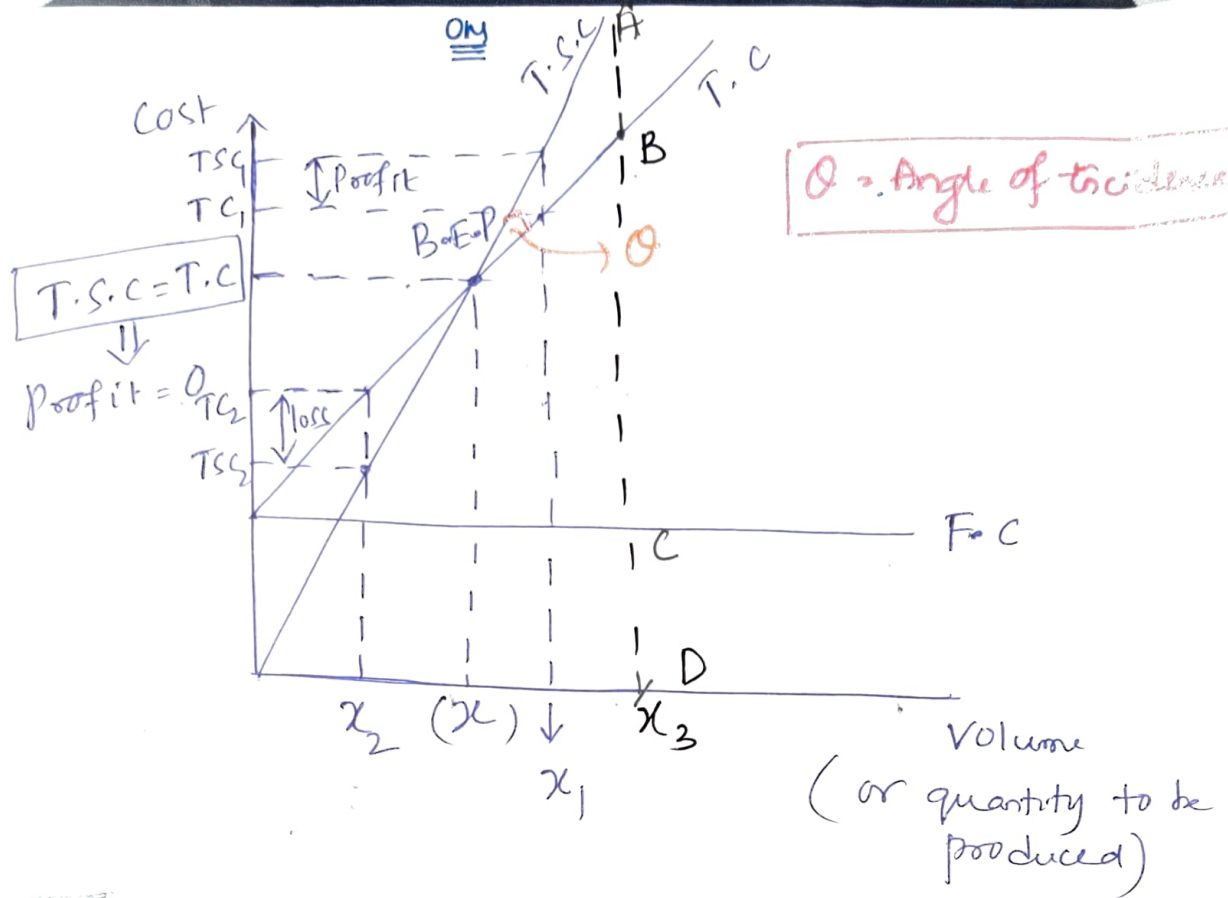 On
T.S.C
A
T.C
Cost
TSC1
Profit
TC1
B
θ = Angle of Incidence
B.E.P
θ
T.S.C = T.C
⇓
Profit = 0
TC2
loss
TSC2
F.C
C
D
x2 (x) x3
x1
Volume
(or quantity to be
produced)